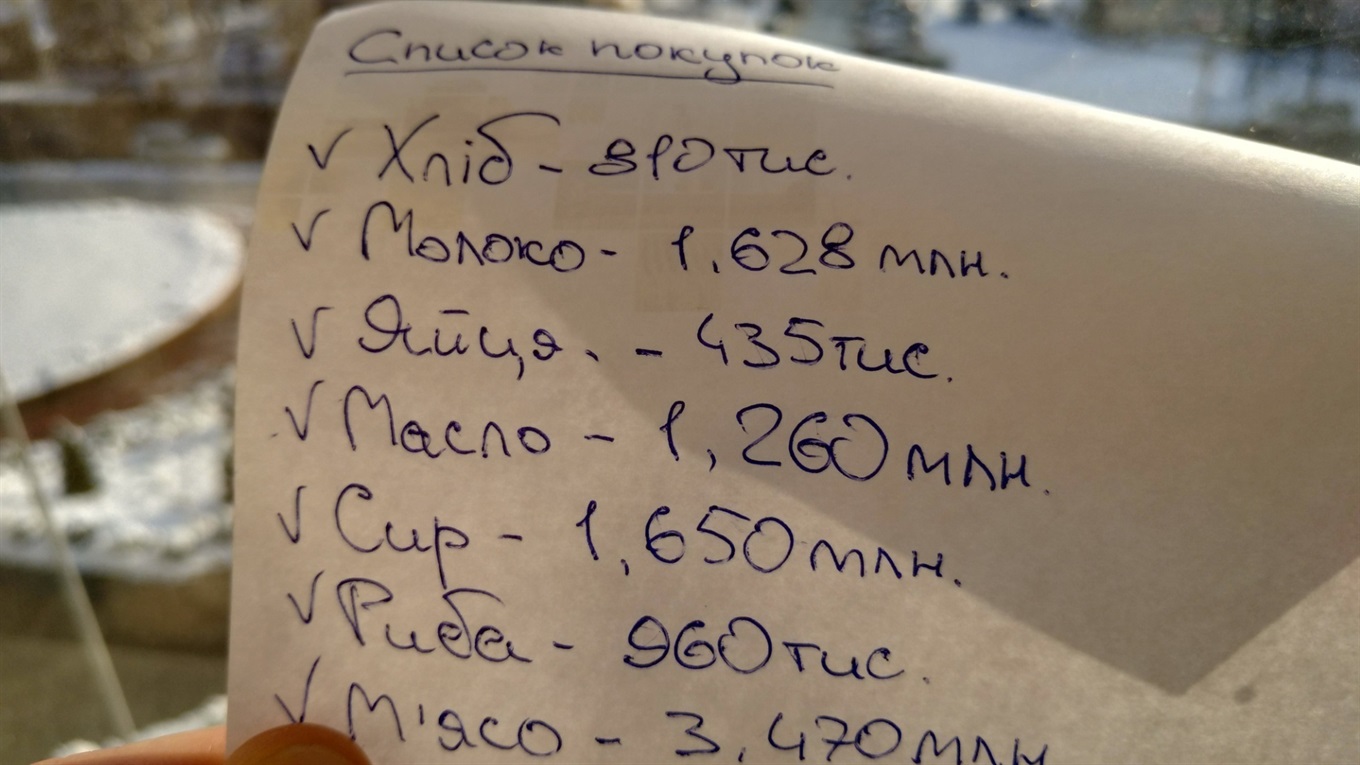 Список покупок
✓ Хліб - 810 тис.
✓ Молоко - 1,628 млн.
✓ Яйця. - 435 тис.
✓ Масло - 1,260 млн.
✓ Сир - 1,650 млн.
✓ Риба - 960 тис.
✓ М'ясо - 3,470 млн